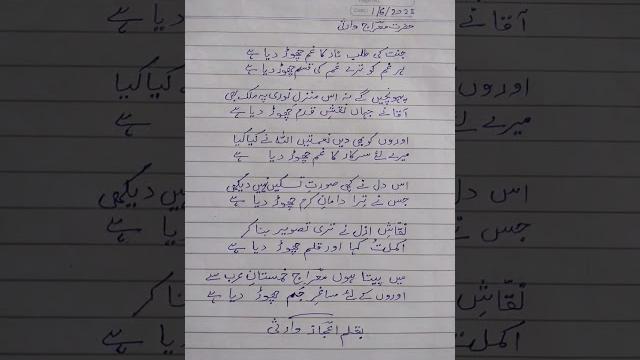 1/6/2025
حضرت معراج وارثی
جنت کی طلب نار کا غم چھوڑ دیا ہے
ہر غم کو ترے غم کی قسم چھوڑ دیا ہے
پہونچیں گے نہ اس منزل نوری پہ ملک بھی
آقا نے جہاں نقش قدم چھوڑ دیا ہے
اوروں کو بھی دیں نعمتیں اللہ نے کیا کیا
میرے لئے سرکار کا غم چھوڑ دیا ہے
اس دل نے کبھی صورت تسکیں نہیں دیکھی
جس نے ترا دامان کرم چھوڑ دیا ہے
نقاش ازل نے تری تصویر بنا کر
اکملت کہا اور قلم چھوڑ دیا ہے
میں پیتا ہوں معراج خمستان عرب سے
اوروں کے لئے ساغر جم چھوڑ دیا ہے
بقلم اعجاز وارثی